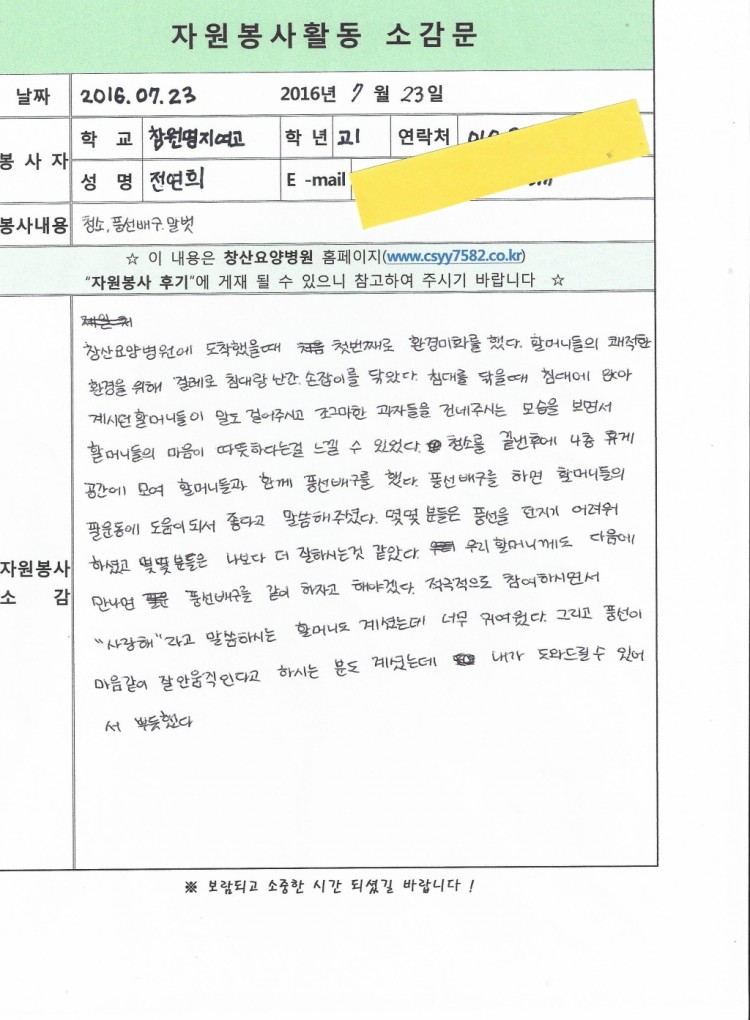 자원봉사활동 소감문
날짜 2016.07.23 2016년 7 월 23일
봉 사 자
학 교 창원명지여고 학 년 고1 연락처
성 명 전연희 E -mail
봉사내용 청소, 풍선배구. 말벗
☆ 이 내용은 창산요양병원 홈페이지(www.csyy7582.co.kr)
"자원봉사 후기"에 게재 될 수 있으니 참고하여 주시기 바랍니다 ☆
자원봉사
소 감
창산요양병원에 도착했을때 첫번째로 환경미화를 했다. 할머니들의 쾌적한
환경을 위해 걸레로 침대랑 난간. 손잡이를 닦았다. 침대를 닦을때 침대에 앉아
계시던 할머니들이 말도 걸어주시고 조그마한 과자들을 건네주시는 모습을 보면서
할머니들의 마음이 따뜻하다는걸 느낄 수 있었다. 청소를 끝낸후에 4층 휴게
공간에 모여 할머니들과 함께 풍선배구를 했다. 풍선배구를 하면 할머니들의
팔운동에 도움이 되서 좋다고 말씀해주셨다. 몇몇 분들은 풍선을 던지기 어려워
하셨고 몇몇 분들은 나보다 더 잘하시는것 같았다. 우리 할머니께도 다음에
만나면 풍선배구를 같이 하자고 해야겠다. 적극적으로 참여하시면서
"사랑해"라고 말씀하시는 할머니도 계셨는데 너무 귀여웠다. 그리고 풍선이
마음같이 잘 안움직인다고 하시는 분도 계셨는데 내가 도와드릴수 있어
서 뿌듯했다
※ 보람되고 소중한 시간 되셨길 바랍니다 !